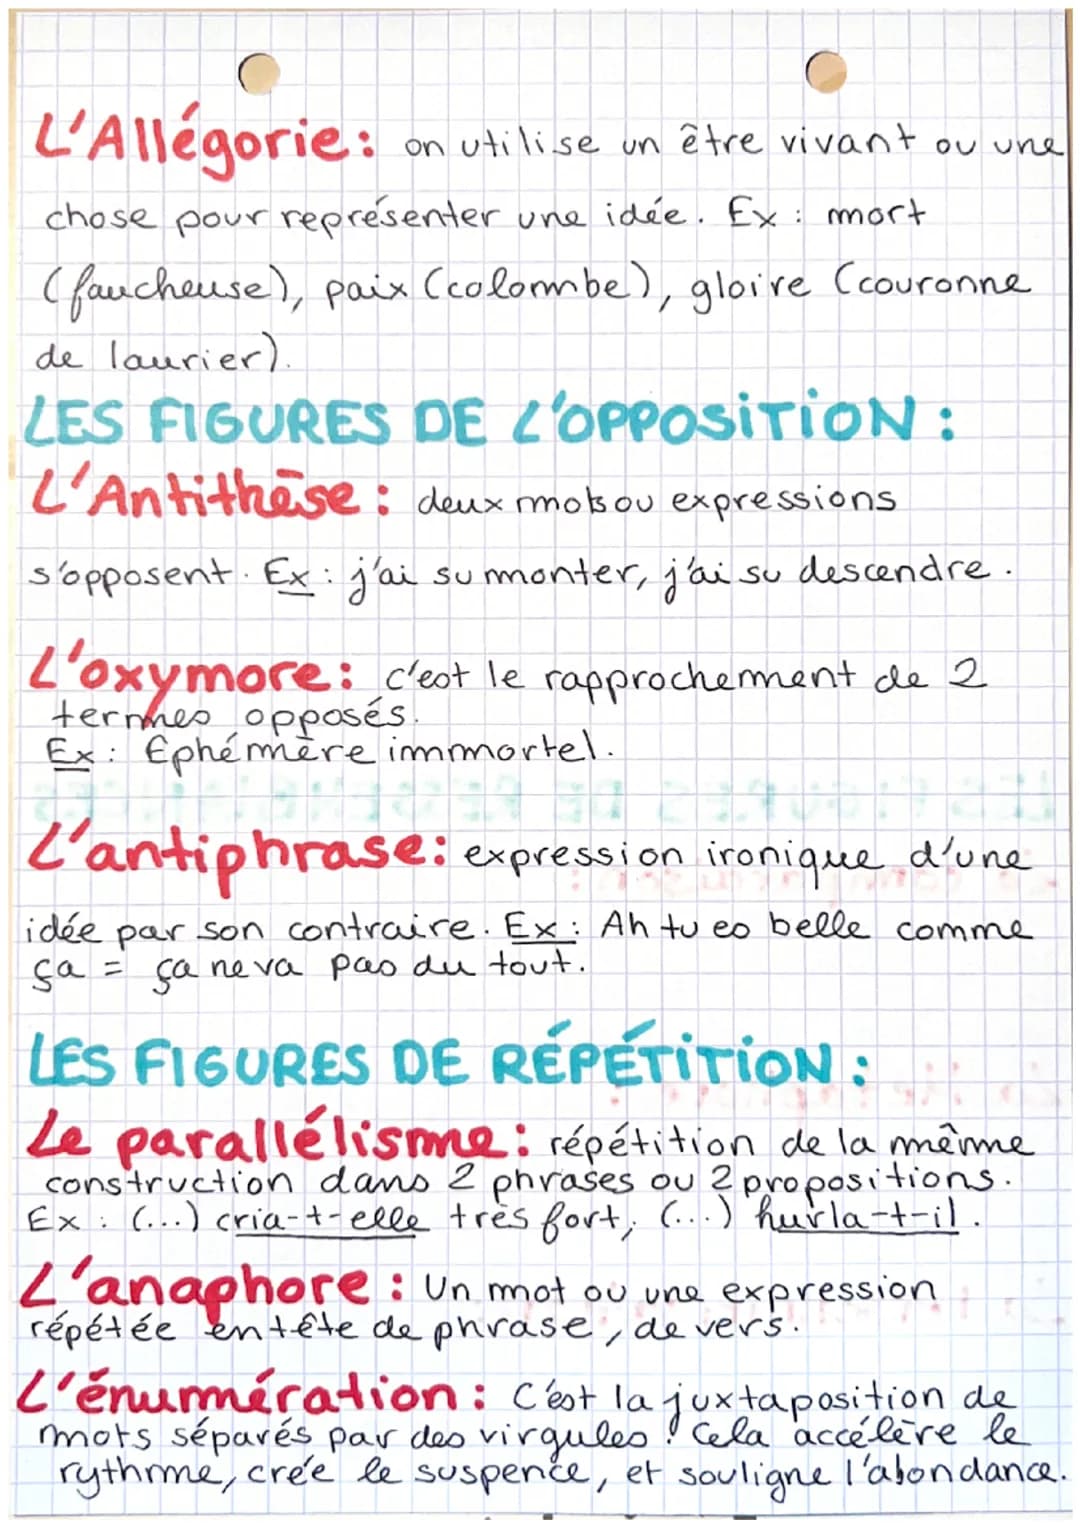 L'Allégorie : on utilise un être vivant ou une
chose pour représenter une idée. Ex : mort
(faucheuse), paix (colombe), gloire (couronne
de laurier).
LES FIGURES DE L'OPPOSITION :
L'Antithèse : deux mots ou expressions
s'opposent. Ex : j'ai su monter, j'ai su descendre.
L'oxymore : c'est le rapprochement de 2
termes opposés.
Ex : Ephémère immortel.
L'antiphrase : expression ironique d'une
idée par son contraire. Ex : Ah tu es belle comme
ça = ça ne va pas du tout.
LES FIGURES DE RÉPÉTITION :
Le parallélisme : répétition de la même
construction dans 2 phrases ou 2 propositions.
Ex : (...) cria-t-elle très fort, (...) hurla-t-il.
L'anaphore : Un mot ou une expression
répétée en tête de phrase, de vers.
L'énumération : C'est la juxtaposition de
mots séparés par des virgules ! Cela accélère le
rythme, crée le suspence, et souligne l'abondance.